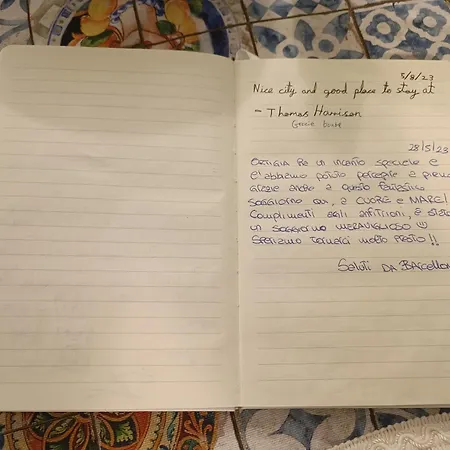 5/8/23
Nice city and good place to stay at
- Thomas Harrison
28/5/23
ORTIGIA HA UN INCANTO SPECIALE E
L'ABBIAMO POTUTO PERCEPIRE A PIENO
GRAZIE ANCHE A QUESTO FANTASTICO
SOGGIORNO QUI, A CUORE E MARE!
COMPLIMENTI AGLI ANFITRIONI, È STATO
UN SOGGIORNO MERAVIGLIOSO
SPERIAMO TORNARCI MOLTO PRESTO!!
Saluti DA BARCELLON